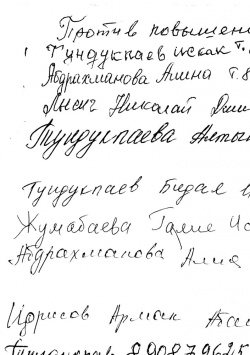 Против повышени
Тундукпаев Искак Т.
Абдрахманова Амина Т.8
Лысич Николай Дми
Тундукпаева Алтын
Тундукпаев Бидал
Жумабаева Галие Ис
Абдрахманова Алма
Идрисов Арман
Тундукпаев 8908796